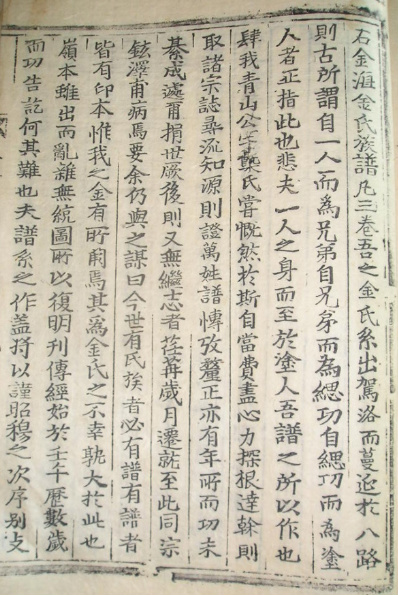 石金海金氏族譜凡三卷吾之金氏系出駕洛而蔓延於八路
則古所謂自一人而為兄弟自兄弟而為緦功自緦功而為塗
人者正指此也悲夫一人之身而至於塗人吾譜之所以作也
肆我青山公氏嘗慨然於斯自當費盡心力探根達幹則
取諸宗誌尋流知源則證萬姓譜博攷釐正亦有年所而功未
綦成遽爾捐世厥後則又無繼志者荏苒歲月遷就至此同宗
鉉澤甫病焉要余仍與之謀曰今世有氏族者必有譜有譜者
皆有印本惟我之金有所闕焉其為金氏之不幸孰大於此也
嶺本雖出而亂雜無統圖所以復明刊傳經始於壬午歷數歲
而功告訖何其難也夫譜系之作盖将以謹昭穆之次序別支